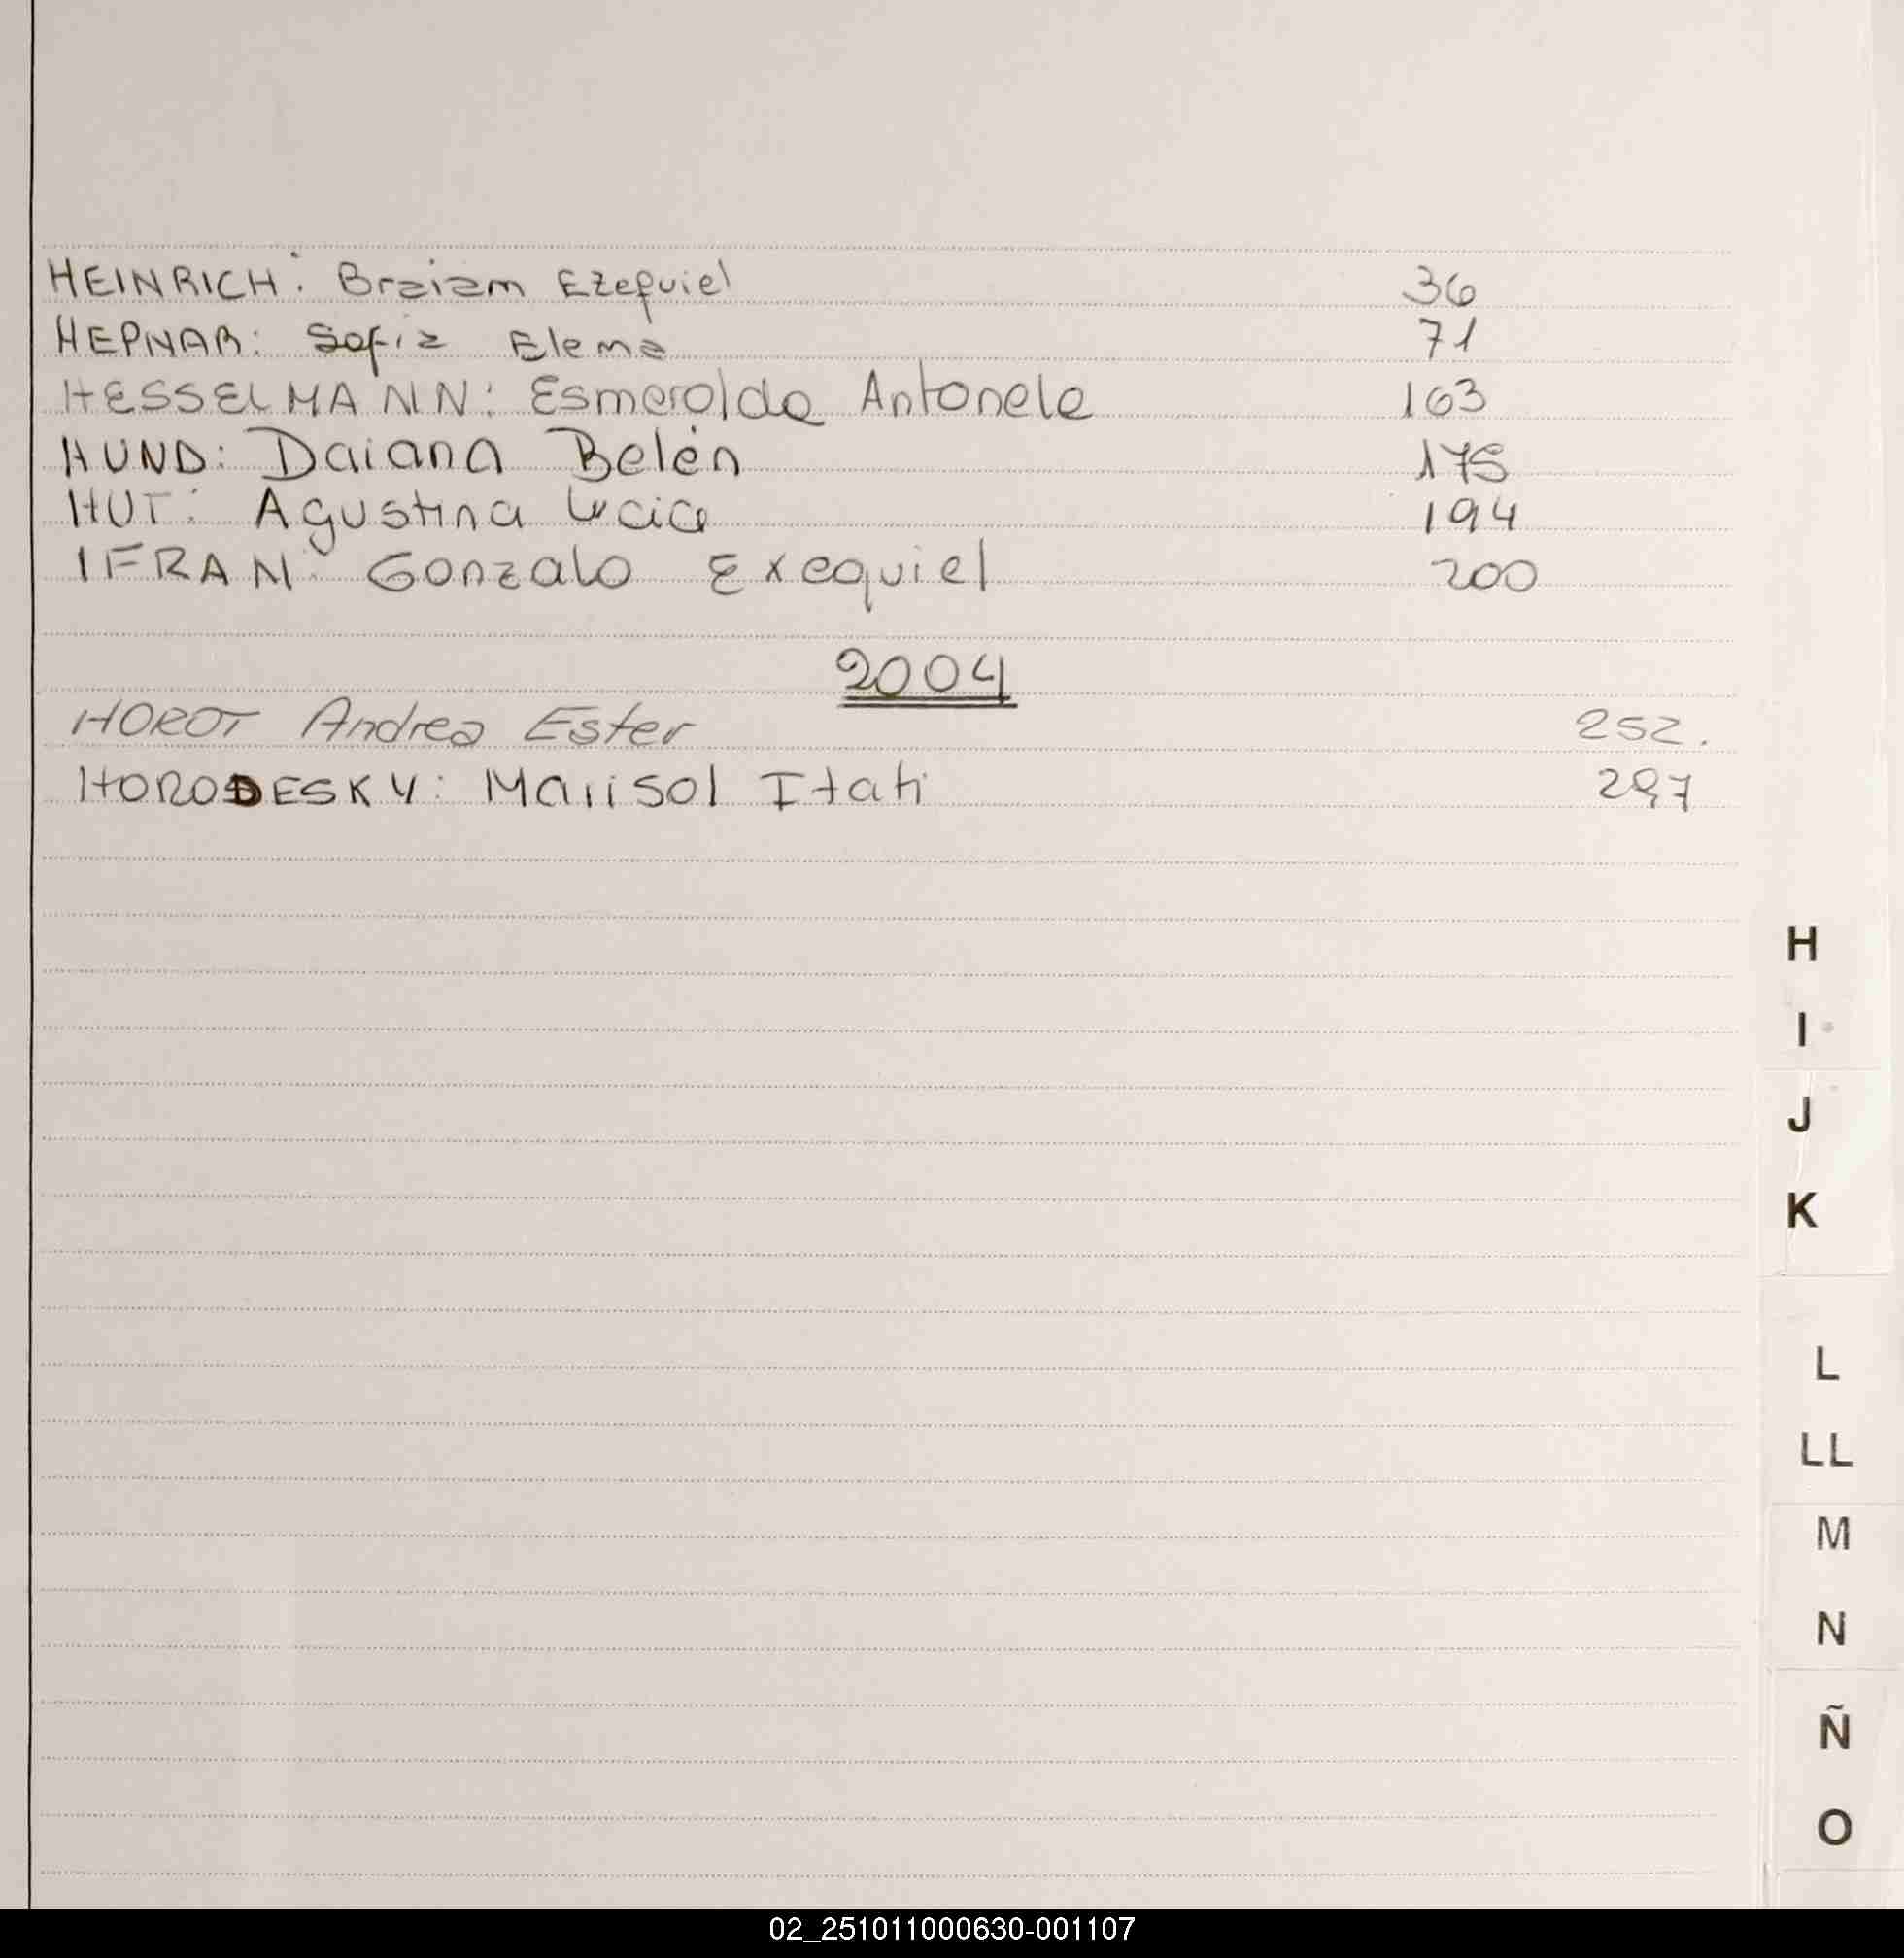 HEINRICH: Braian Ezequiel 36
HEPNAR: Sofia Elena 71
HESSELMANN: Esmeralda Antonela 163
HUND: Daiana Belén 175
HUT: Agustina Lucia 194
IFRAN: Gonzalo Exequiel 200
2004
HOROT Andrea Ester 252.
HORODESKY: Marisol Itati 297
H
I
J
K
L
LL
M
N
Ñ
O
02_251011000630-001107